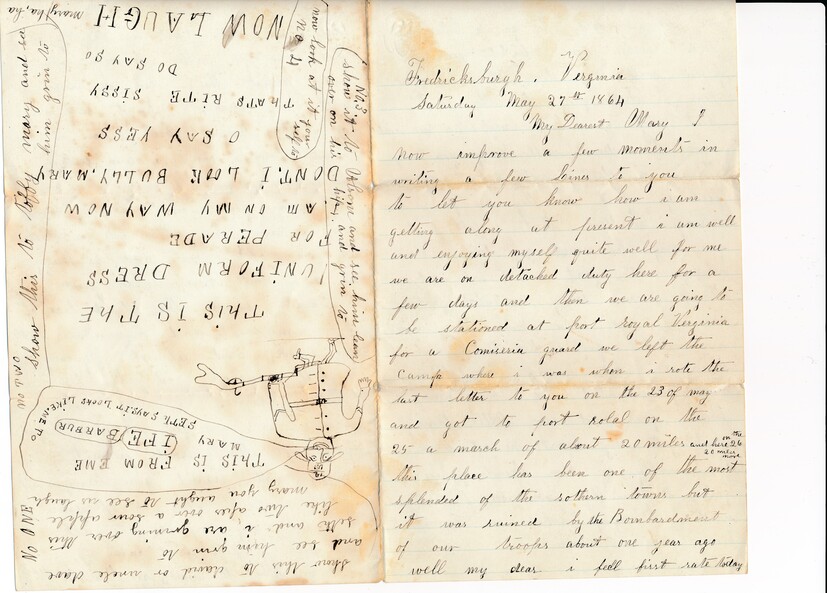 Fredricksburgh. Virginia
Saturday May 27th 1864
My Dearest Mary I
now improve a few moments in
writing a few lines to you
to let you know how i am
getting along at present i am well
and enjoying myself quite well for me
we are on detached duty here for a
few days and then we are going to
be stationed at port royal Virginia
for a Comiseria guard we left the
camp where i was when i rote the
last letter to you on the 23 of may
and got to port rolal on the
25 a march of about 20 miles and here on the 26
20 miles more
this place has been one of the most
splended of the sothern towns but
it was ruined by the Bombardment
of our troops about one year ago
well my dear i fell first rate today
No ONE
show this to david or uncle dave
and see him grin to
seth and i are grining over this
like two apes over a sour apple
mary you aught to see us laugh
THIS IS FROM EME
MARY
IFE BARBUR
SETH SAYS IT LOOKS LIKE ME TO
THIS IS THE
UNIFORM DRESS
FOR PERADE
AM ON MY WAY NOW
DONT. I LOOK BULLY. MARY
O SAY YESS
THATS RITE SISSY
DO SAY SO
NOW LAUGH
mary ha, ha
no two
show this to mary and see
him grin to
No. 3
show it to and see him lean
over on his hip and grin to
no 4
now look at it your